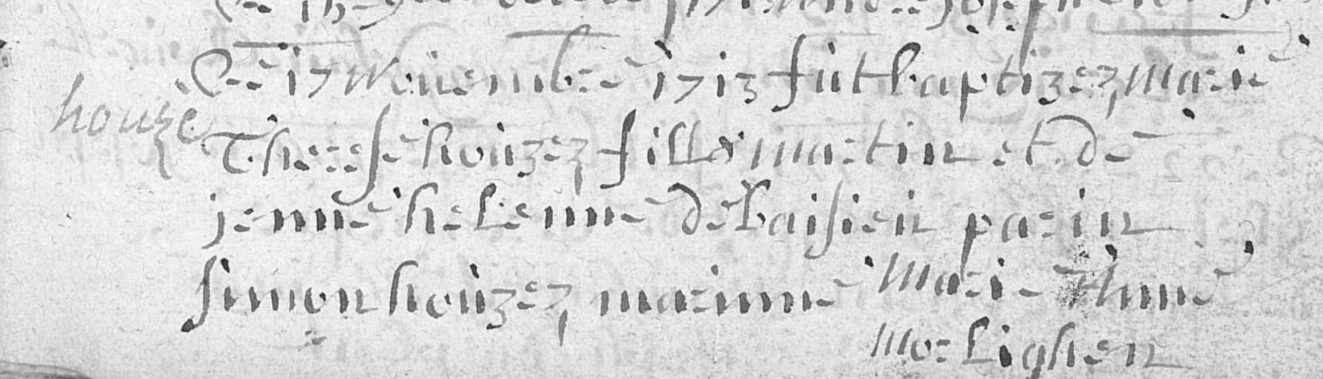 Le 17 Novembre 1713 fut baptizez marie
houze
Therese houzez fille martin et de
jenne helenne debaisieu parin
simon houzez, marinne Marie Anne
Morlighen